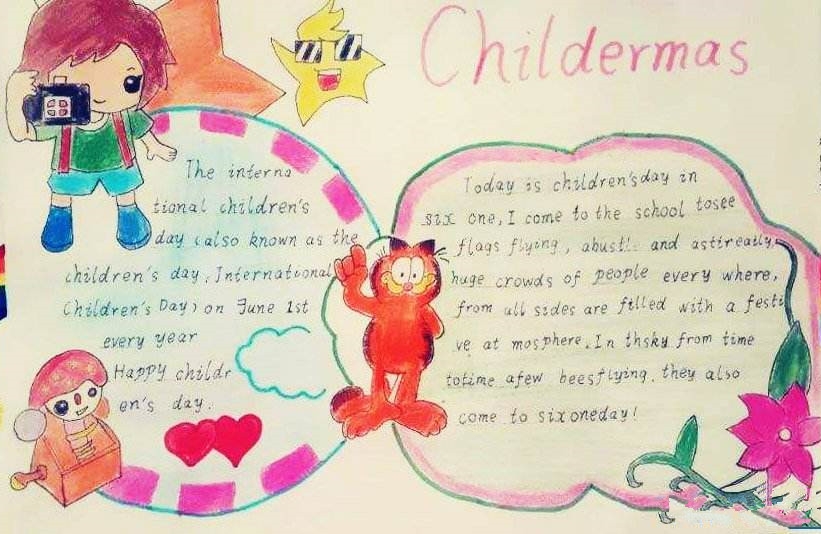 Childermas
The interna
tional children's
day (also known as the
children's day, International
Children's Day) on June 1st
every year
Happy childr
en's day.
Today is children's day in
six one, I come to the school tosee
flags flying, abustl. and astireatly,
huge crowds of people every where,
from all sides are filled with a festi
ve at mosphere. In thsky from time
totime afew beesflying. they also
come to sixoneday!